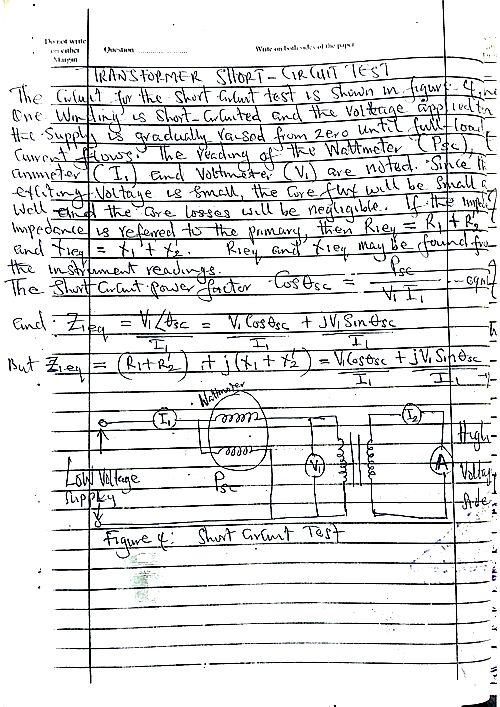 Do not write
on either
Margin
Question
Write on both sides of the paper
TRANSFORMER SHORT-CIRCUIT TEST
The Circuit for the short circuit test is shown in figure 4,
One Winding is Short-circuited and the voltage applied
the Supply is gradually raised from zero until full-load
Current flows. The reading of the Wattmeter (Psc),
ammeter (I1) and Voltmeter (V1) are noted. Since
exciting Voltage is small, the Core flux will be small
Well and the Core losses will be negligible. If the
impedance is referred to the primary, then R1eq = R1 + R2'
and X1eq = X1 + X2'. R1eq and X1eq may be found
the instrument readings.
The Short Circuit power factor Cosθsc = Psc / V1 I1
and Z1eq = V1∠θsc / I1 = V1 Cosθsc / I1 + jV1 Sinθsc / I1
But Z1eq = (R1+R2') + j(X1+X2') = V1Cosθsc / I1 + jV1 Sinθsc / I1
Wattmeter
I1
I2
V1
A
High
Voltage
Side
Low Voltage
Supply
Psc
Figure 4: Short Circuit Test